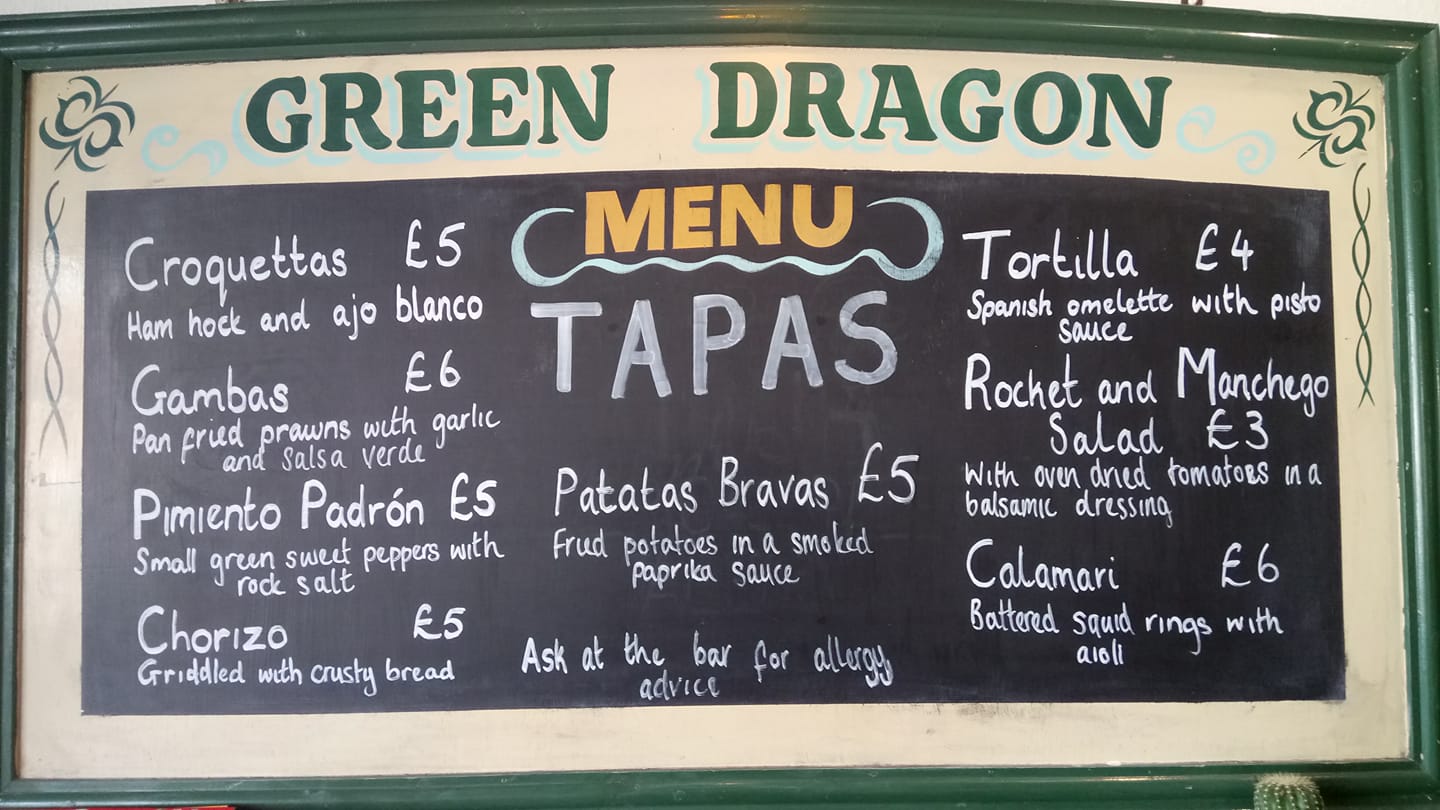 GREEN DRAGON
MENU
TAPAS
Croquettas £5
Ham hock and ajo blanco
Gambas £6
Pan fried prawns with garlic
and salsa verde
Pimiento Padrón £5
Small green sweet peppers with
rock salt
Chorizo £5
Griddled with crusty bread
Patatas Bravas £5
Fried potatoes in a smoked
paprika sauce
Ask at the bar for allergy
advice
Tortilla £4
Spanish omelette with pisto
sauce
Rocket and Manchego
Salad £3
With oven dried tomatoes in a
balsamic dressing
Calamari £6
Battered squid rings with
aioli